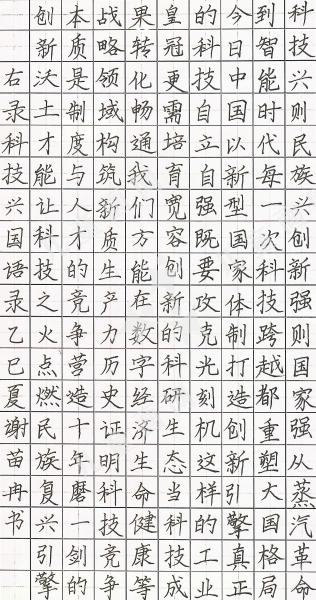 科技兴则民族兴创新强则国家强从蒸汽革命
到智能时代每一次科技跨越都重塑大国格局
今日中国以新型国家体制打造创新引擎真正
的科技自立自强既要攻克光刻机这样的工业
皇冠更需培育宽容创新的科研生态当科技成
果转化畅通我们方能在数字经济生命健康等
战略领域构筑新质生产力历史证明科技竞争
本质是制度与人才的竞争营造十年磨一剑的
创新沃土才能让科技之火点燃民族复兴引擎
右录科技兴国语录乙巳夏谢苗冉书